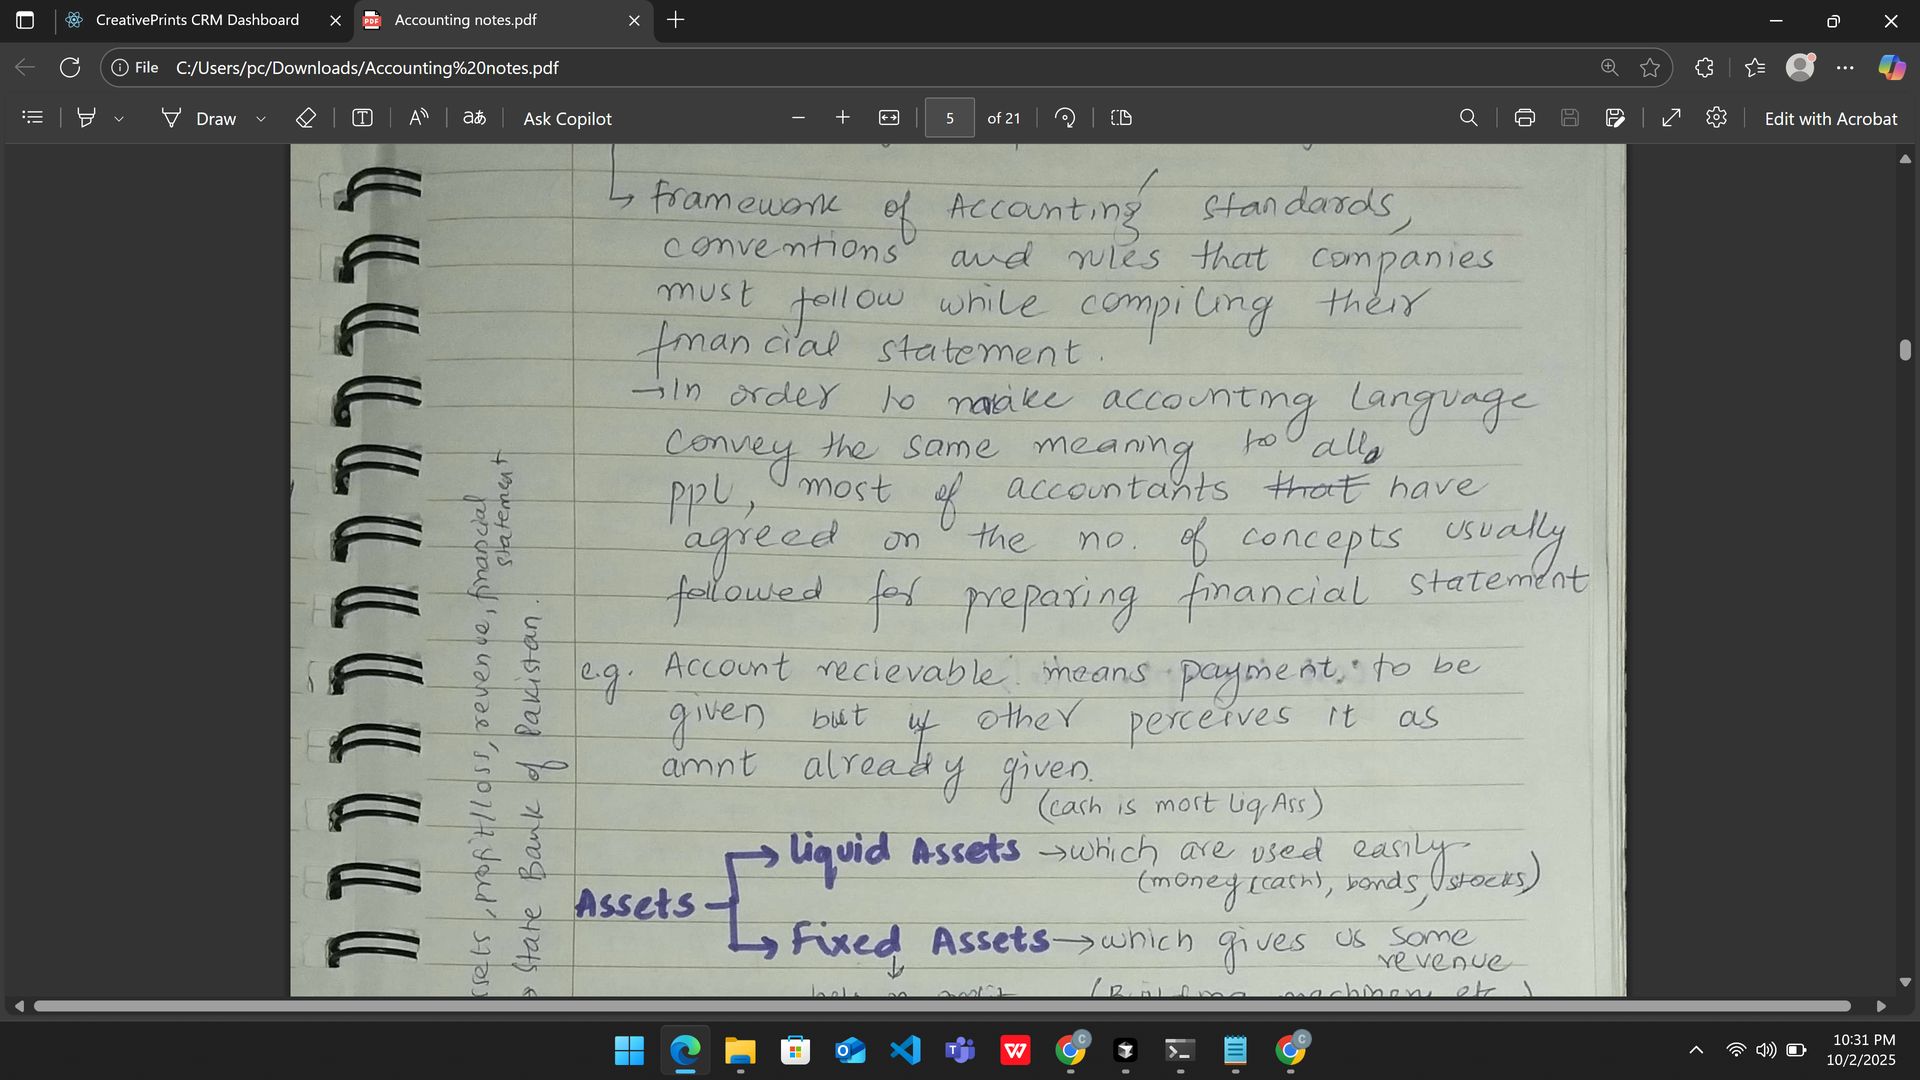 CreativePrints CRM Dashboard
Accounting notes.pdf
File C:/Users/pc/Downloads/Accounting%20notes.pdf
Draw
Ask Copilot
5 of 21
Edit with Acrobat
Framework of Accounting standards,
conventions and rules that companies
must follow while compiling their
financial statement.
→ In order to make accounting language
convey the same meaning to all
ppl, most of accountants that have
agreed on the no. of concepts usually
followed for preparing financial statement
e.g. Account recievable means payment to be
given but if other perceives it as
amnt already given.
(cash is most Liq Ass)
Liquid Assets → which are used easily
(money (cash), bonds, stocks)
Assets
Fixed Assets → which gives us some
revenue
, profit/loss, revenue, financial
statement
State Bank of Pakistan.
10:31 PM
10/2/2025